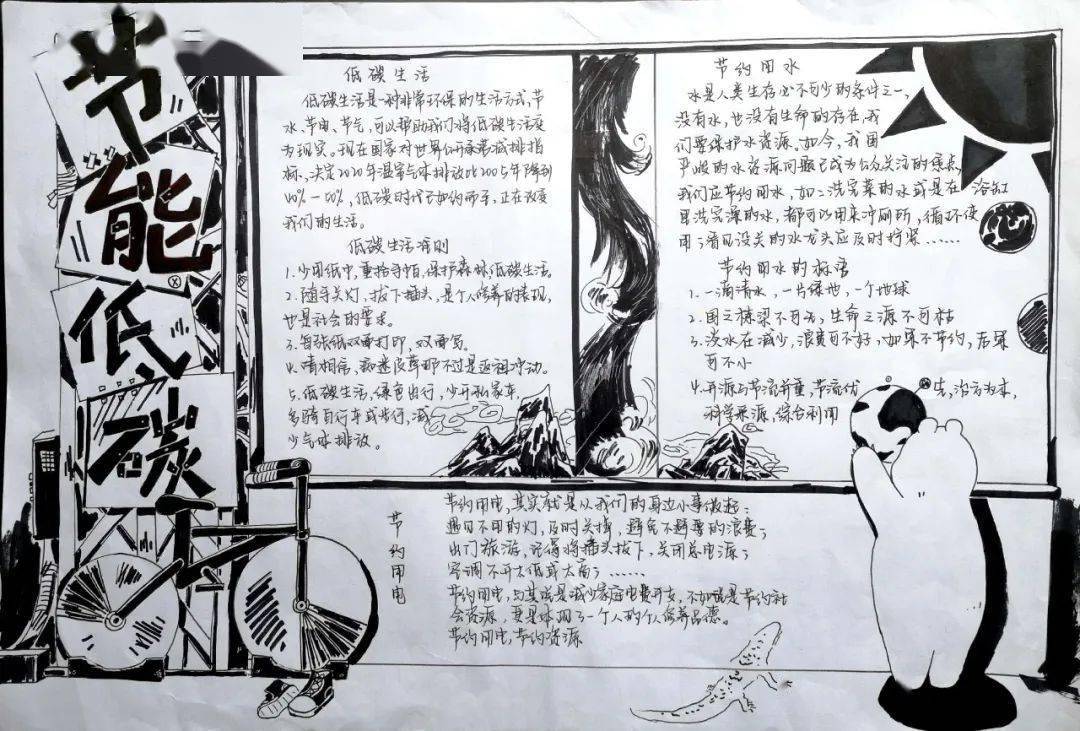 节
能
低
碳
低碳生活
低碳生活是一种非常环保的生活方式,节
水、节电、节气,可以帮助我们将低碳生活变
为现实。现在国家对世界公开承诺减排指
标,决定2020年温室气体排放比2005年降到
40%-50%,低碳时代已如约而至,正在改变
我们的生活。
低碳生活准则
1.少用纸巾,重拾手帕,保护森林,低碳生活。
2.随手关灯,拔下插头,是个人修养的表现,
也是社会的要求。
3.每张纸双面打印,双面写。
4.请相信,痴迷皮草那不过是返祖冲动。
5.低碳生活,绿色出行,少开私家车,
多骑自行车或步行,减
少气体排放。
节约用水
水是人类生存必不可少的条件之一,
没有水,也没有生命的存在,我
们要保护水资源。如今,我国
严峻的水资源问题已成为公众关注的焦点,
我们应节约用水,如:洗完菜的水或是在浴缸
里洗完澡的水,都可以用来冲厕所,循环使
用;看见没关的水龙头应及时拧紧……
节约用水的标语
1.一滴清水,一片绿地,一个地球
2.国之栋梁不可无,生命之源不可枯
3.淡水在减少,浪费可不好,如果不节约,后果
可不小
4.开源与节流并重,节流优先,治污为本,
科学开源,综合利用
节约用电
节约用电,其实就是从我们的身边小事做起:
遇见不用的灯,及时关掉,避免不必要的浪费;
出门旅游,记得将插头拔下,关闭总电源;
空调不开太低或太高;……
节约用电,与其说是减少家庭电费开支,不如说是节约社
会资源,更是体现了一个人的个人修养品德。
节约用电,节约资源